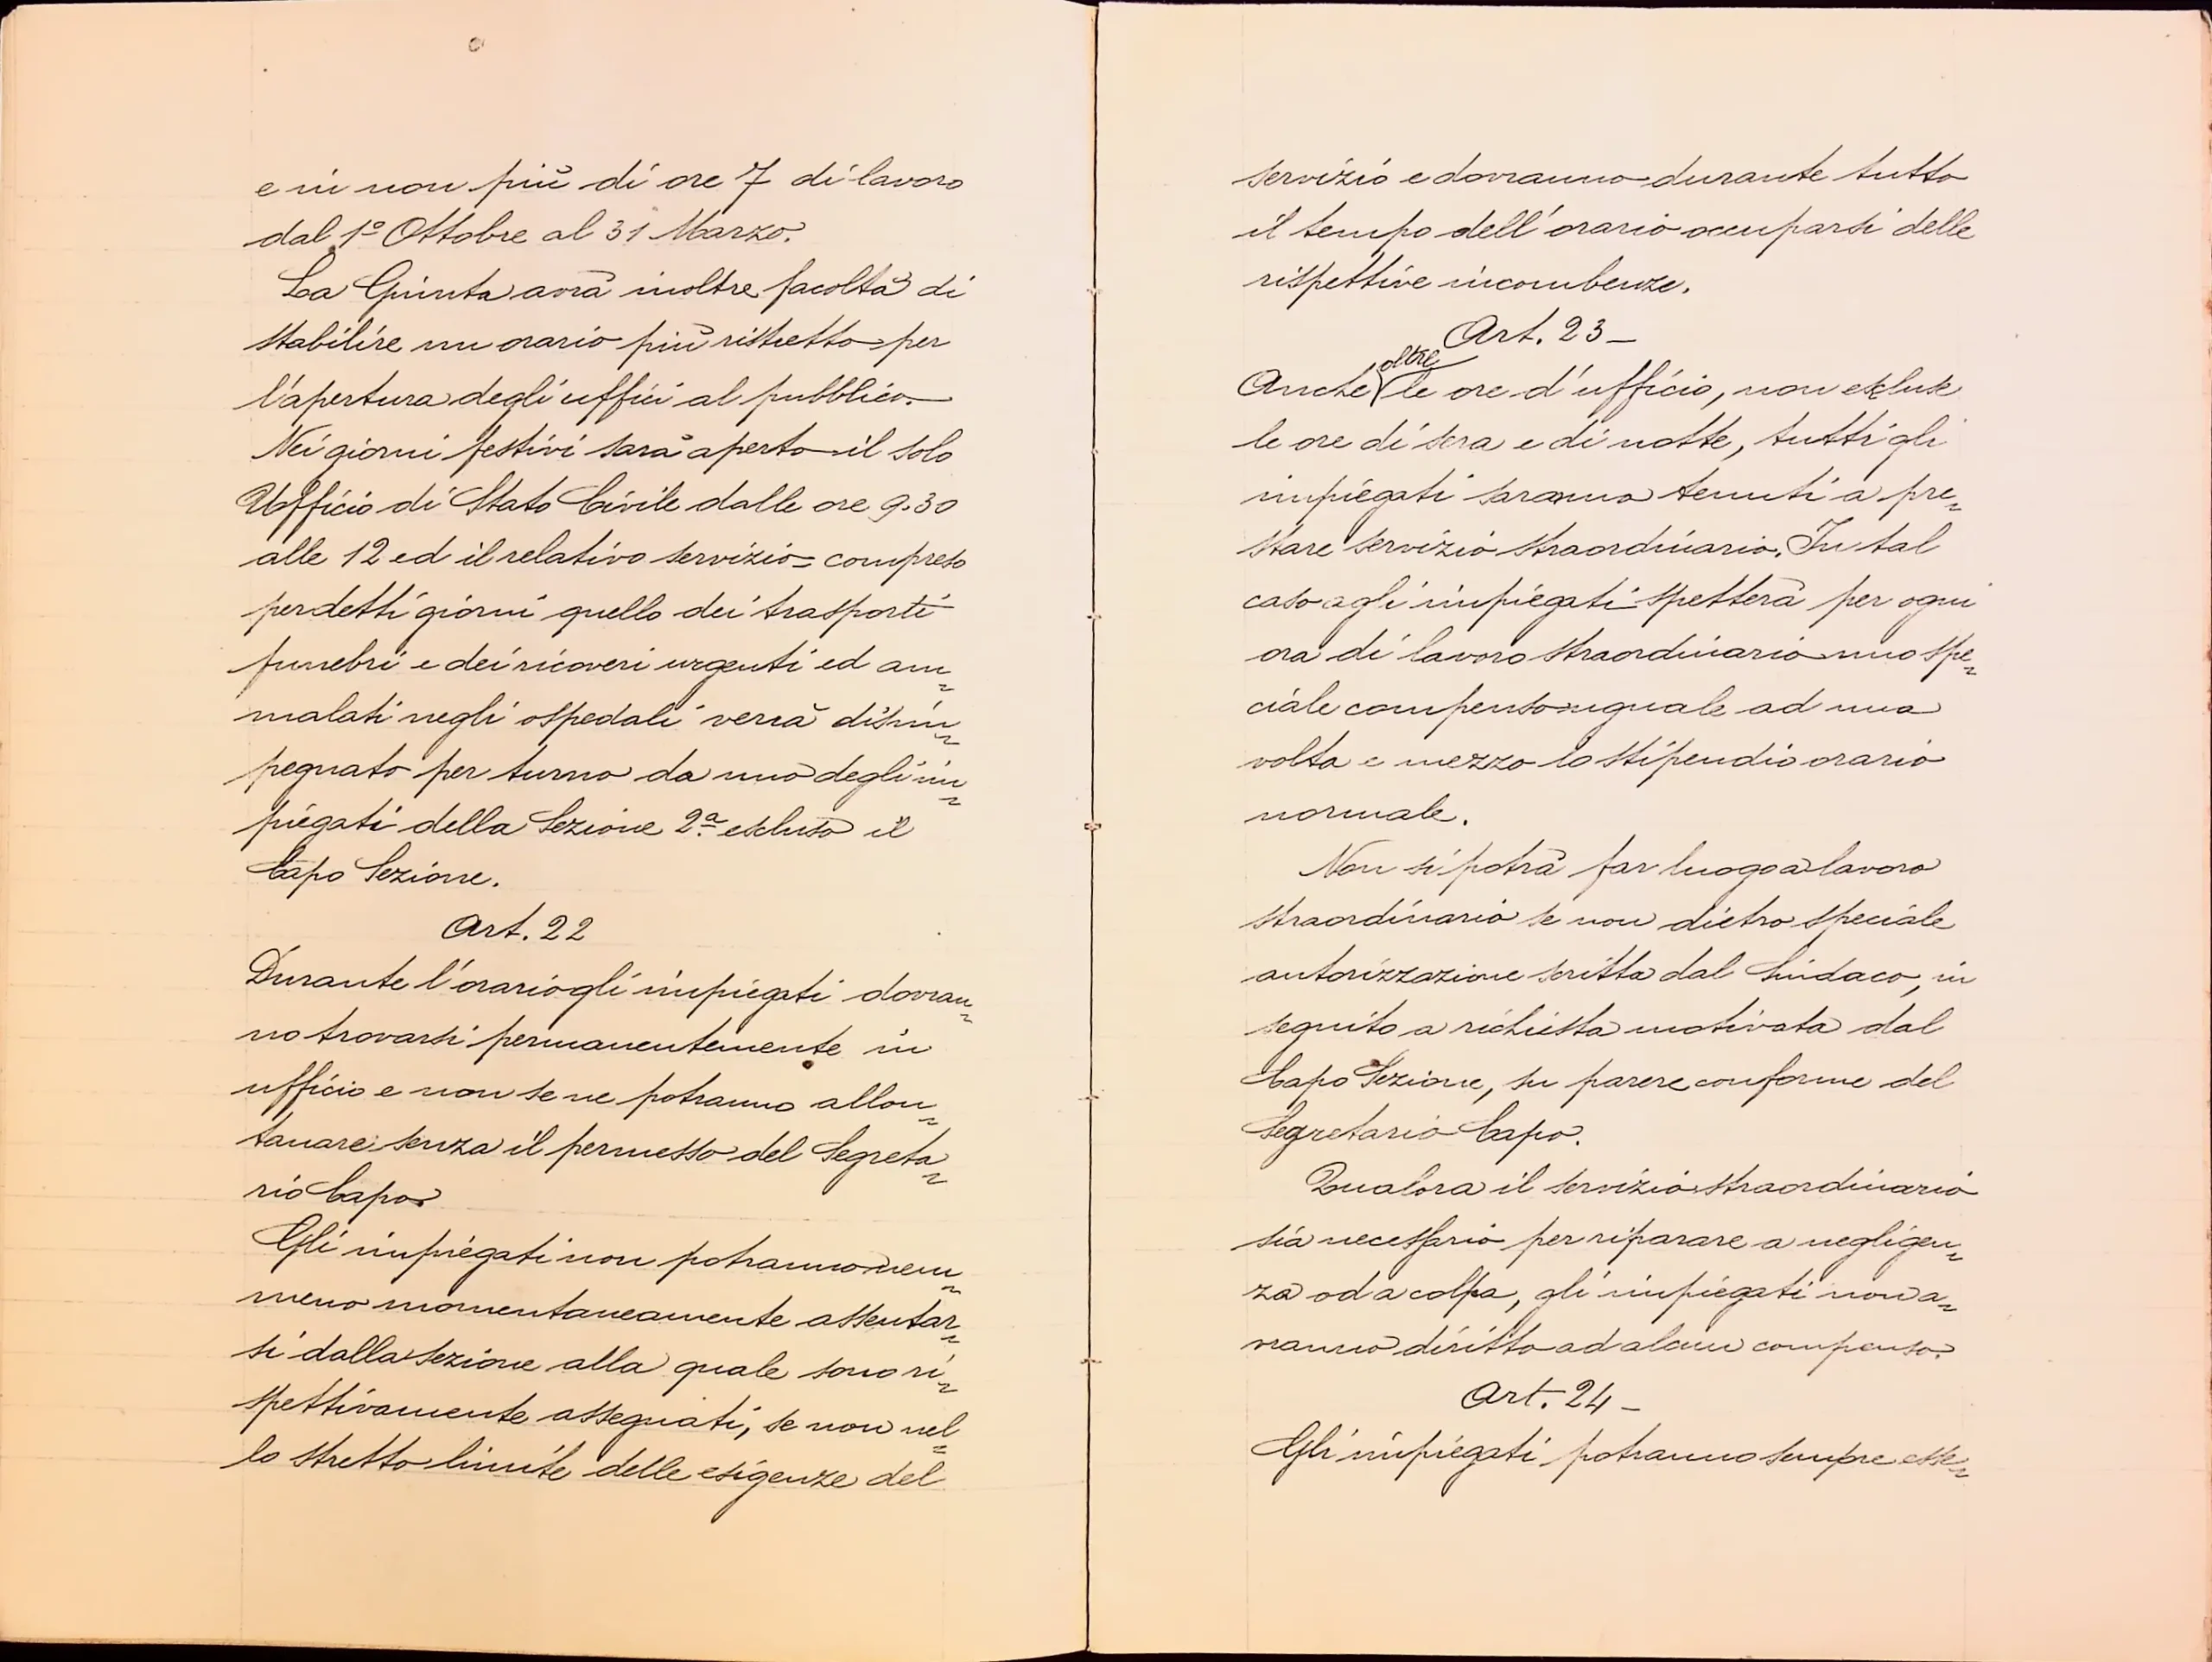 e in non più di ore 7 di lavoro
dal 1º Ottobre al 31 Marzo.
La Giunta avrà inoltre facoltà di
stabilire un orario più ristretto per
l'apertura degli uffici al pubblico.
Nei giorni festivi sarà aperto il solo
Ufficio di Stato Civile dalle ore 9.30
alle 12 ed il relativo servizio = compreso
per detti giorni quello dei trasporti
funebri e dei ricoveri urgenti ed am=
malati negli ospedali verrà disim=
pegnato per turno da uno degli im=
piegati della Sezione 2ª escluso il
Capo Sezione.
Art. 22
Durante l'orario gli impiegati dovran=
no trovarsi permanentemente in
ufficio e non se ne potranno allon=
tanare senza il permesso del Segreta=
rio Capo.
Gli impiegati non potranno nem=
meno momentaneamente assentar=
si dalla sezione alla quale sono ri=
spettivamente assegnati, se non nel=
lo stretto limite delle esigenze del
servizio e dovranno durante tutto
il tempo dell'orario occuparsi delle
rispettive incombenze.
Art. 23 _
Anche oltre le ore d'ufficio, non escluse
le ore di sera e di notte, tutti gli
impiegati saranno tenuti a pre=
stare servizio straordinario. In tal
caso agli impiegati spetterà per ogni
ora di lavoro straordinario uno spe=
ciale compenso uguale ad una
volta e mezzo lo stipendio orario
normale.
Non si potrà far luogo a lavoro
straordinario se non dietro speciale
autorizzazione scritta dal Sindaco, in
seguito a richiesta motivata dal
Capo Sezione, su parere conforme del
Segretario Capo.
Qualora il servizio straordinario
sia necessario per riparare a negligen=
za od a colpa, gli impiegati non a=
vranno diritto ad alcun compenso.
Art. 24 _
Gli impiegati potranno sempre esse=